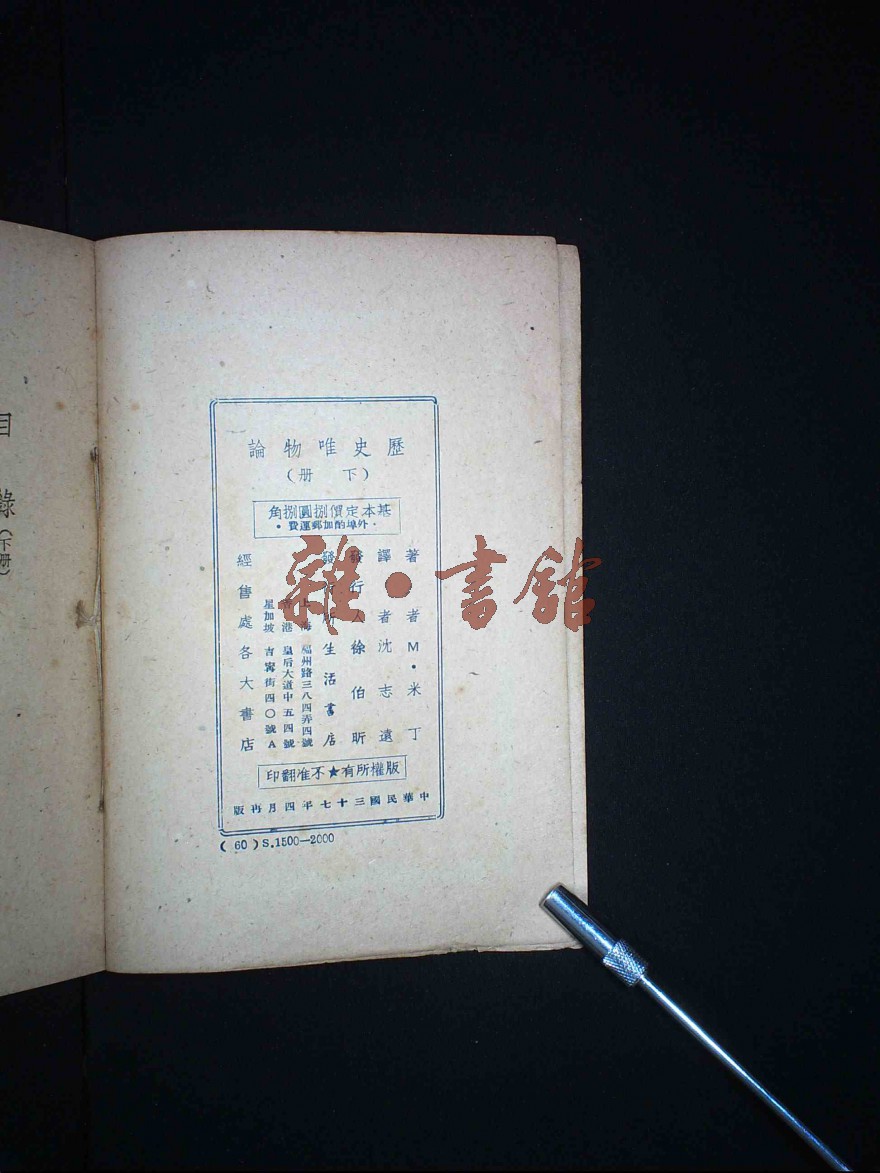 歷史唯物論
（下 册）
基本定價捌圓捌角
·外埠酌加郵運費·
著者 M·米丁
譯者 沈志遠
發行人 徐伯昕
發行所 生活書店
上海 福州路三八四弄四號
香港 皇后大道中五四號
星加坡 吉寧街四〇號A
經售處 各大書店
版權所有★不准翻印
中華民國三十七年四月再版
(60) S.1500—2000
目 錄（下册）
雜·書館